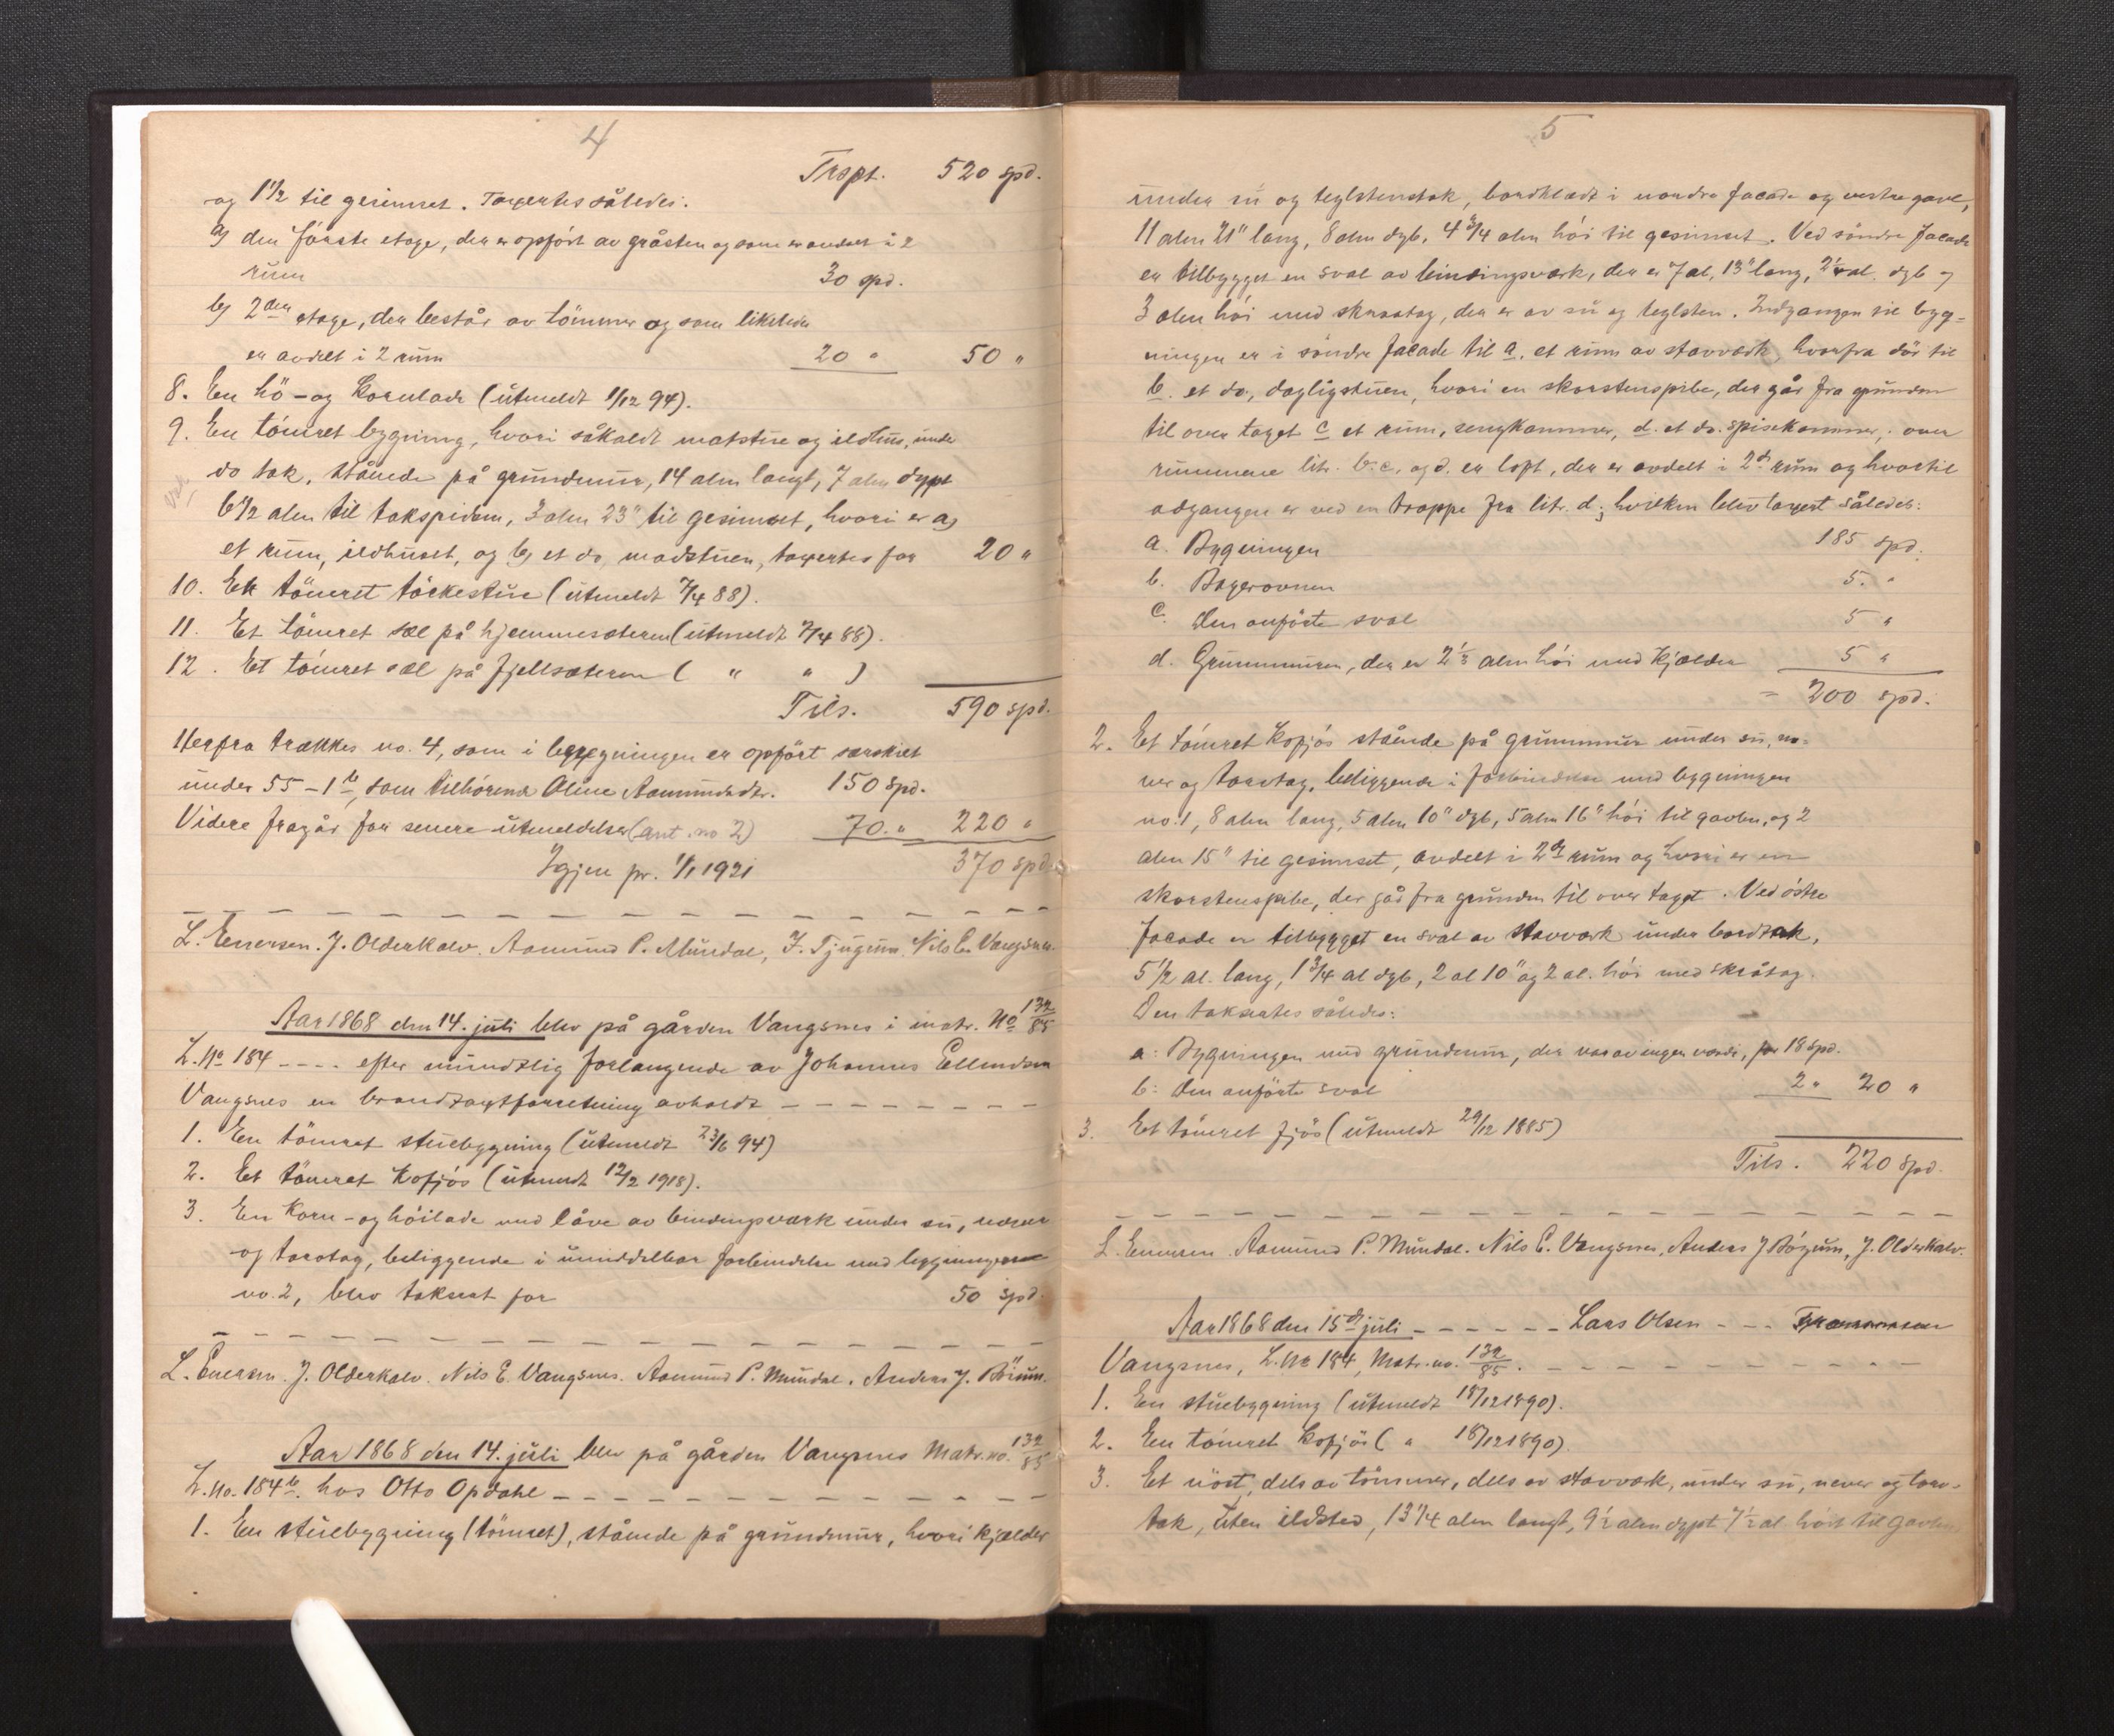 4
Trspt. 520 spd.
og 1 1/2 til gesimset. Taxertes således:
a) den første etage, der er opført av gråsten og som er avdelt i 2
rum 30 spd.
b) 2den etage, der består av tömmer og som likeledes
er avdelt i 2 rum 20 " 50 "
8. En hö- og kornlade (utmeldt 1/12 94).
9. En tömret bygning, hvori såkaldt matstue og ildhus, under
do tak, stående på grundmur, 14 alen langt, 7 alen dypt
6 1/2 alen til takspidsen, 3 alen 23" til gesimset, hvori er a)
et rum, ildhuset, og b) et do, madstuen, taxertes for 20 "
10. En tömret törkestue (utmeldt 7/4 88).
11. Et tömret sæl på hjemmesæteren (utmeldt 7/4 88).
12. Et tömret sæl på fjellsæteren ( " " )
Tils. 590 spd.
Herfra trækkes no. 4, som i beregningen er opført særskilt
under 55-1b, som tilhörende Oline Aamundsdtr. 150 spd.
Videre fragår for senere utmeldelser (ant. no 2) 70. " 220 "
Igjen pr. 1/1 1921 370 spd.
L. Enersen. J. Olderkalv. Aamund P. Mundal, J. Tjugum. Nils E. Vangsnes.
Aar 1868 den 14. juli blev på gården Vangsnes i matr. No 132/85
L. No 184 ---- efter mundtlig forlangende av Johannes Ellendsen
Vangsnes en brandtaxtforretning avholdt --------
1. En tömret stuebygning (utmeldt 23/6 94)
2. Et tömret kofjös (utmeldt 12/2 1918).
3. En korn- og höilade med låve av bindingsværk under su, næver
og torvtag, beliggende i umiddelbar forbindelse med bygningen
no. 2, blev taksert for 50 spd.
L. Enersen. J. Olderkalv. Nils E. Vangsnes. Aamund P. Mundal. Anders J. Böium.
Aar 1868 den 14. juli blev på gården Vangsnes Matr. no. 132/85
L. No. 184b. hos Otto Opdahl --------
1. En stuebygning (tömret), stående på grundmur, hvori kjælder
5
under su og teglstenstak, bordklædt i nordre facade og vestre gavl,
11 alen 21" lang, 8 alen dyb, 4 3/4 alen höi til gesimset. Ved söndre facade
er tilbygget en sval av bindingsværk, der er 7 al. 13" lang, 2 1/4 al. dyb og
3 alen höi med skraatag, der er av su og teglsten. Indgangen til byg-
ningen er i söndre facade til a. et rum av stavværk, hvorfra dör til
b. et do, dagligstuen, hvori en skorstenspibe, der går fra grunden
til over taget c et rum, sengkammer, d. et do. spisekammer; over
rummene litr. b. c. og d. er loft, der er avdelt i 2de rum og hvortil
adgangen er ved en trappe fra litr. d; hvilken blev taxert således:
a. Bygningen 185 spd.
b. Bagerovnen 5. "
c. Den anförte sval 5 "
d. Grunnmuren, der er 2 1/2 alen höi med kjælder 5 "
= 200 spd.
2. Et tömret kofjös stående på grunnmur under su, næ-
ver og torvtag, beliggende i forbindelse med bygningen
no. 1, 8 alen lang, 5 alen 10" dyb, 5 alen 16" höi til gavlen, og 2
alen 15" til gesimset, avdelt i 2de rum og hvori er en
skorstenspibe, der går fra grunden til over taget. Ved östre
facade er tilbygget en sval av stavværk under bordtak,
5 1/2 al. lang, 1 3/4 al dyb, 2 al 10" og 2 al. höi med skråtag.
Den taksertes således:
a: Bygningen med grundmur, der var av ingen værdi, for 18 spd.
b: Den anförte sval 2 " 20 "
3. Et tömret fjös (utmeldt 29/12 1885)
Tils. 220 spd.
L. Enersen. Aamund P. Mundal. Nils E. Vangsnes, Anders J Böyum, J. Olderkalv.
Aar 1868 den 15de juli ------ Lars Olsen ---
Vangsnes, L. No 184, Matr. no. 132/85. --------
1. En stuebygning (utmeldt 18/12 1890).
2. En tömret kofjös ( " 18/12 1890).
3. Et nöst, dels av tömmer, dels av stavværk, under su, never og torv-
tak, uten ildsted, 13 1/4 alen langt, 9 1/2 alen dypt 7 1/2 al. höit til gavlen